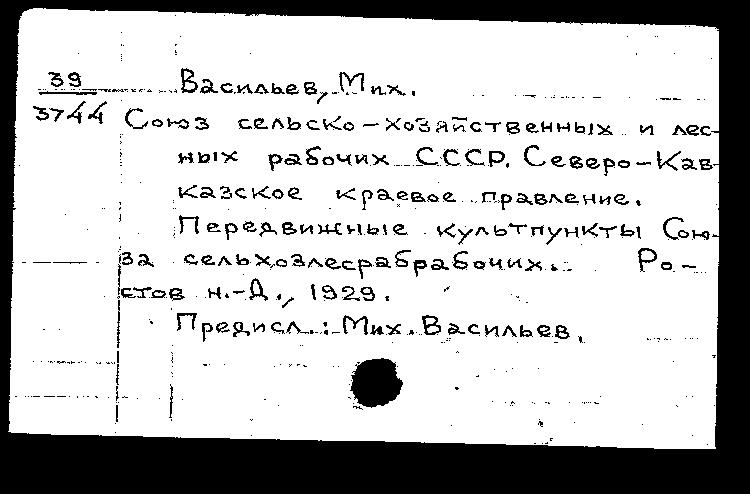 39 Васильев, Мих.
3744 Союз сельско-хозяйственных и лес-
ных рабочих СССР. Северо-Кав-
казское краевое правление.
Передвижные культпункты Сою-
за сельхозлесрабрабочих. Ро-
стов н.-Д., 1929.
Предисл.: Мих. Васильев.